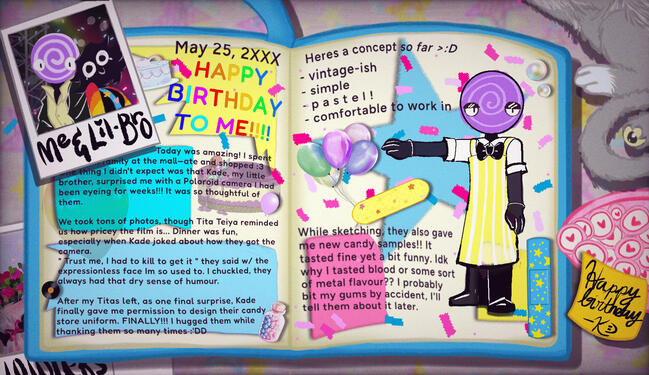 Me & Lil-Bro
May 25, 2XXX
HAPPY
BIRTHDAY
TO ME!!!!
Today was amazing! I spent
family at the mall-ate and shopped :3
thing I didn't expect was that Kade, my little
brother, surprised me with a Poloroid camera I had
been eyeing for weeks!!! It was so thoughtful of
them.
We took tons of photos, though Tita Teiya reminded
us how pricey the film is... Dinner was fun,
especially when Kade joked about how they got the
camera.
" Trust me, I had to kill to get it " they said w/ the
expressionless face Im so used to. I chuckled, they
always had that dry sense of humour.
After my Titas left, as one final surprise, Kade
finally gave me permission to design their candy
store uniform. FINALLY!!! I hugged them while
thanking them so many times :'DD
Heres a concept so far >:D
- vintage-ish
- simple
- p a s t e l ! !
- comfortable to work in
While sketching, they also gave
me new candy samples!! It
tasted fine yet a bit funny. Idk
why I tasted blood or some sort
of metal flavour?? I probably
bit my gums by accident, I'll
tell them about it later.
Happy
birthday